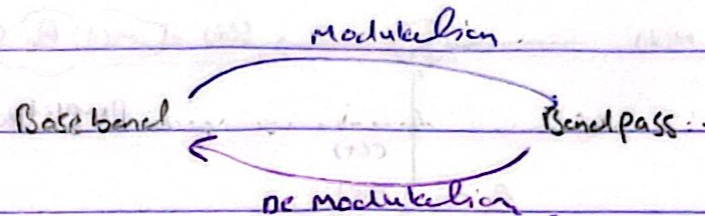 Modulation.
Baseband Bandpass.
De Modulation